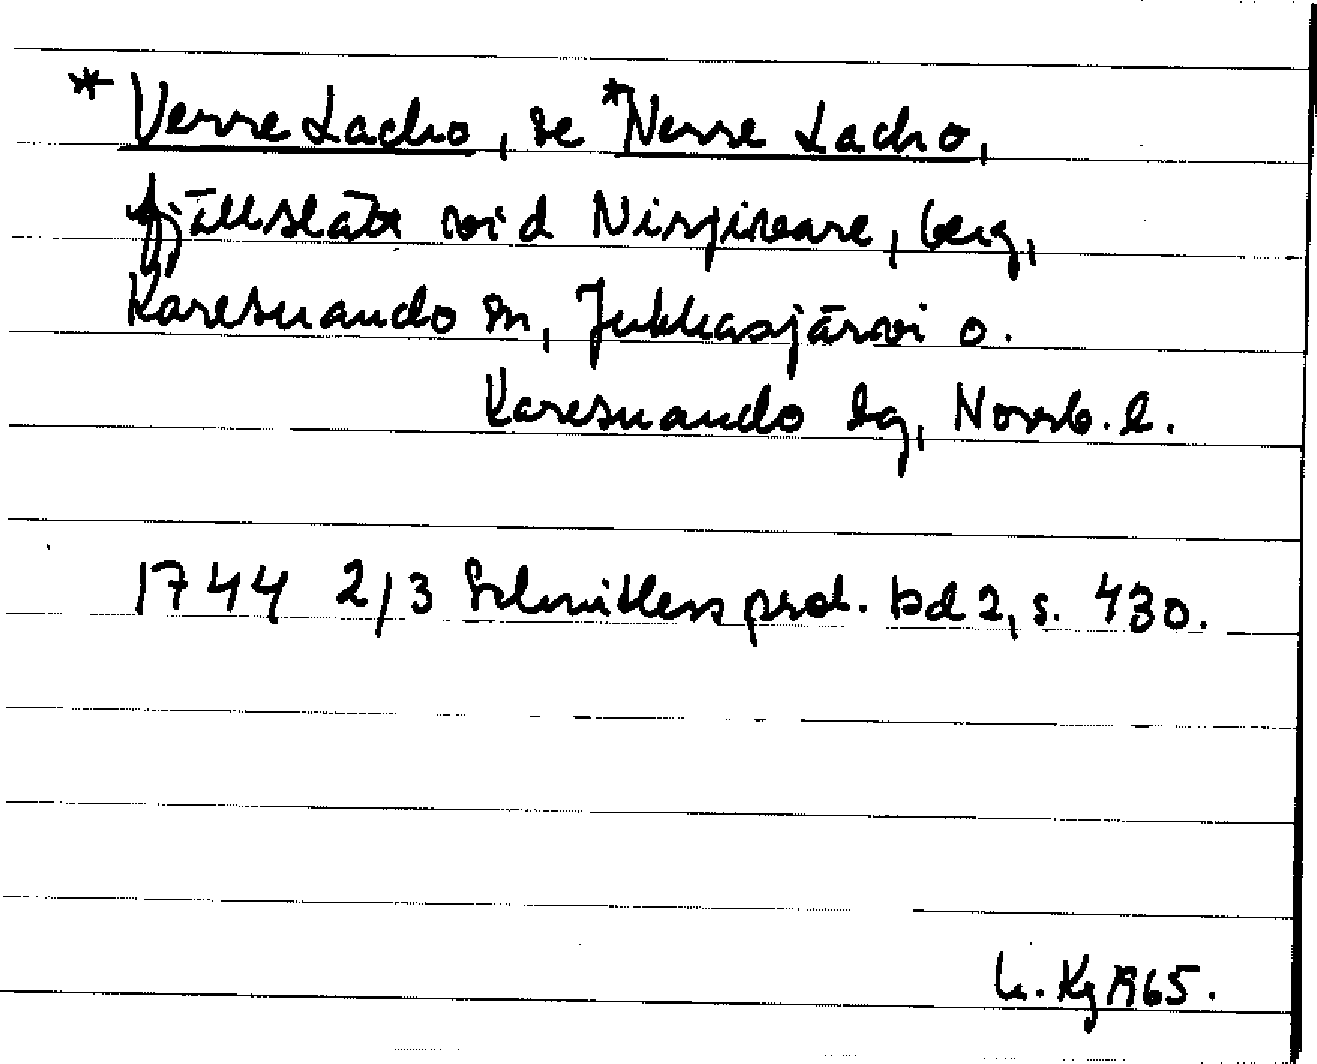 * Verre Lacho, se *Nerre Lacho,
fjällslätt vid Nirgivare, berg,
Karesuando sn, Jukkasjärvi o.
Karesuando lg, Norrb. l.
1744 2/3 Schnitlers prot. bd 2, s. 430.
Kg 1965.